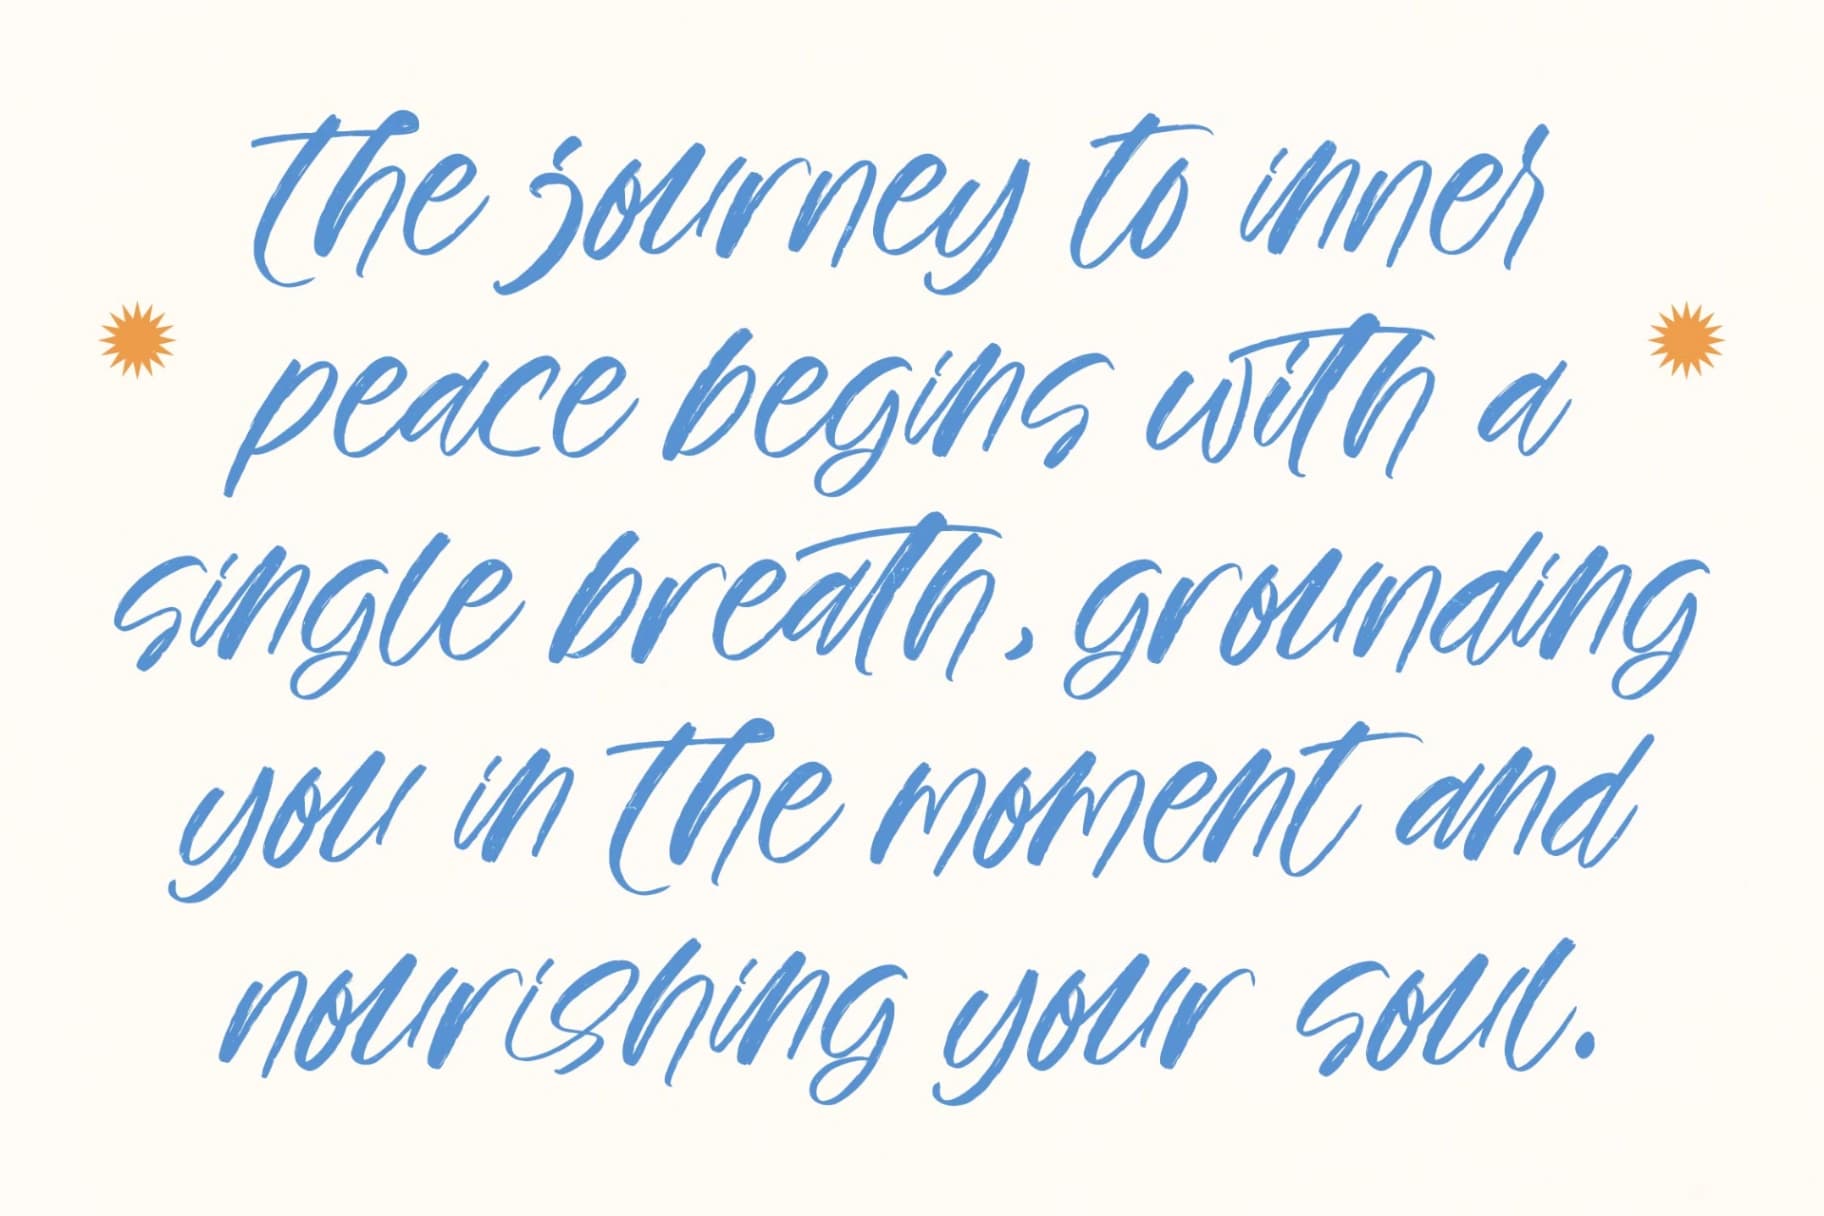 the journey to inner
peace begins with a
single breath, grounding
you in the moment and
nourishing your soul.